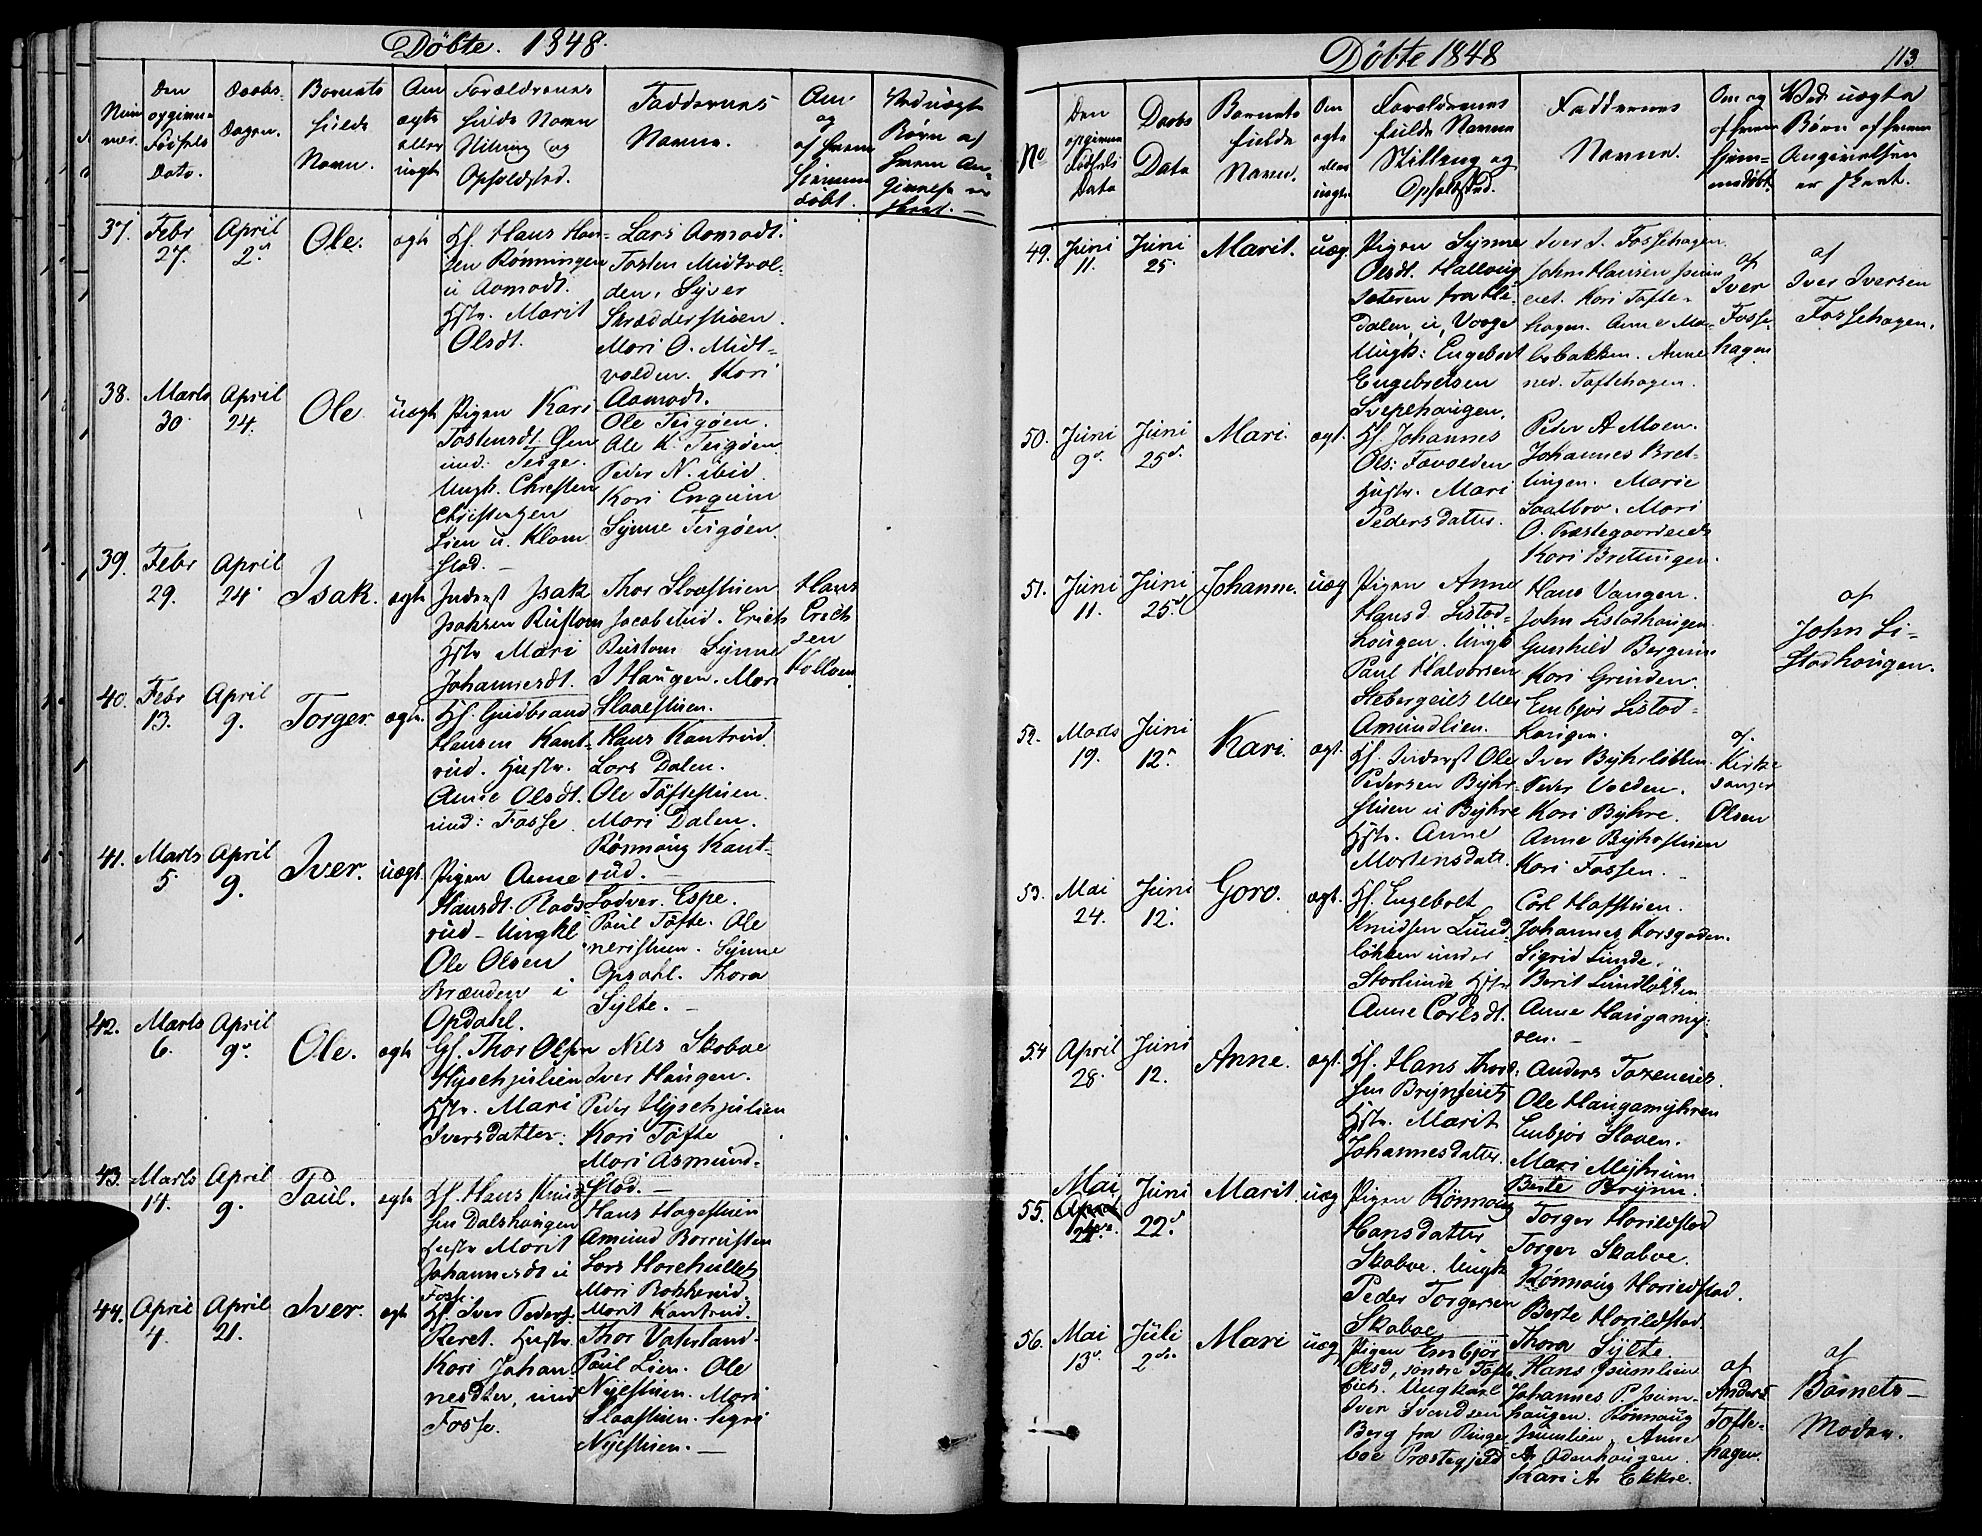 Döbte. 1848.
Num
mer.
Den
opgivne
Födsels
Dato.
Daabs
Dagen.
Barnets
fulde
Navn.
Om
ægte
eller
uægte
Forældrenes
fulde Navn
Stilling og
Opholdsted.
Faddernes
Navne.
Om
og
af hvem
hjemme
döbt.
Ved uægte
Börn af
hvem An-
givelse er
skeet. —
37. Febr 27. April 2den Ole. ægte
Gf. Hans Han-
sen Rönningen
u Aamodt.
Hstr. Marit
Olsdt.
Lars Aamodt.
Tosten Midtvol-
den. Syver
Skrædderstuen.
Mari O. Midt-
volden. Kari
Aamodt.
38. Marts 30. April 24. Ole. uægte
Pigen Kari
Tostensdt. Öen
und: Teige.
Ungk. Christen
Christensen
Lien u. Klom
stad. —
Ole Teigöen.
Ole K. Teigöen.
Peder N. ibid.
Kari Enguin
Synne Teigöen.
39. Febr 29. April 24. Isak. ægte
Inderst Isak
Isaksen Rustom
Hstr Mari
Johannesdt.
Thor Slaastuen
Jacob ibid. Erich
Rustom Synne
I Haugen. Mari
Slaaestuen.
Hans
Erich
sen
Kolloen
40. Febr 13. April 9. Torger. ægte.
Hf. Gudbrand
Hansen Kant-
rud. Hustr.
Anne Olsdt.
und: Fosse.
Hans Kantrud.
Lars Dalen.
Ole Töftestuen.
Mari Dalen.
Rönnaug Kant-
rud. —
41. Marts 5. April 9. Iver. uægt.
Pigen Anne
Hansdt. Rods-
rud - Ungkl
Ole Olsen
Brænden i
Opdahl.
Lodver. Espe.
Paul Töfte. Ole
neristuen. Synne
Opsahl. Thora
Sylte. —
42. Marts 6. April 9de. Ole. ægte
Gf. Thor Olsen
Hyschjulien
Hstr. Mari
Iversdatter.
Nils Skaboe
Iver Haugen.
Peder Hyschjulien
Kari Töfte
Mari Asmund-
stad. —
43. Marts 14. April 9. Paul. ægte
Hf. Hans Knud
sen Dalshaugen
Hustr Marit
Johannesdt u
Fosse.
Hans Hagestuen
Amund Borrusten
Lars Horehullet
Mari Bakkerud.
Marit Kantrud.
44. April 4. April 21. Iver. ægte
Hf. Iver Peders.
Reret. Hustr.
Kari Johan
nesdter, und
Fosse.
Thor Vaterland.
Paul Lien. Ole
Nyestuen. Mari
Slaastuen. Sigri
Nyestuen. —
Döbte 1848
113
No
Den
opgivne
Födsels
Data
Daabs
Data
Barnets
fulde
Navn.
Om
ægte
eller
uægte
Forældrenes
fulde Navne
Stilling og
Opholdsted.
Faddernes
Navne.
Om og
af hvem
hjem-
medöbt.
Ved uægte
Börn af hvem
Angivelsen
er skeet.
49. Juni 11. Juni 25 Marit. uæg.
Pigen Synne
Olsdt. Hallvig
Sæteren fra He-
dalen, u, Vaage
Ungk: Engebret
Engebretsen
Svepehaugen.
Iver I. Fossehagen.
John Hansen
eiet. Kari Tofte-
hagen. Anne Mo-
bakken. Anne
ned. Toftehagen.
af
Iver
Fosse-
hagen
af
Iver Iversen
Fossehagen.
50. Juni 9de. Juni 25de. Mari. ægt.
Hf. Johannes
Ols: Favolden
Hustr. Mari
Pedersdatter.
Peder A Moen.
Johannes Bret-
tingen. Marie
Saalbro. Mari
O. Præstegaardseiet
Kari Brettingen.
51. Juni 11. Juni 25de Johanne. uæg
Pigen Anne
Hansd. Listad-
haugen. Ungk
Paul Halvorsen
Stebergeiet eller
Amundlien.
Hans Vangen.
John Listadhaugen
Gunhild Bergum
Kari Grinden.
Embjör Listad-
haugen.
af
John Li-
stadhaugen.
52. Marts 19. Juni 12te Kari. ægt.
Hf. Inderst Ole
Pedersen Byhr-
stuen u Byhre
Hstr. Anne
Mortensdatt.
Iver Byhrlökken.
Peder Volden.
Kari Byhre.
Anne Byhrstuen
Kari Fossen. —
af
Kirke
sanger
Olsen
53. Mai 24. Juni 12. Goro. ægt.
Hf. Engebret
Knudsen Lund-
lökken under
Storlunde Hstr
Anne Carlsdt.
Carl Hafstuen.
Johannes Korsgaden.
Sigrid Lunde.
Berit Lundlökken
Anne Haugamy-
ren. —
54 April 28. Juni 12. Anne. ægt.
Hf. Hans Thord-
sen Brynseiet
Hstr. Marit
Johannesdatter.
Anders Toxeneiet.
Ole Haugamyhren
Embjör Slaaen.
Mari Myhrum
Berte Brynn.
55. Mai
April
24. Juni 22de Marit uæg
Pigen Rönnaug
Hansdatter
Skaboe. Ungk
Peder Torgersen
Skaboe
Torger Harildstad
Torger Skaboe.
Rönnaug Harildstad.
Berte Harildstad.
Thora Sylte.
56. Mai 13de. Juli 2den. Mari uæg
Pigen Embjör
Olsd, söndre Töfte
eiet. Ungkarl
Iver Svendsen
Berg fra Ringe
boe Præstegjeld
Hans Fuumlien
Johannes P.
haugen. Rönnaug
Fuumlien. Anne
A. Odenhaugen.
Kari A. Ekkre.
af
Anders
Tofte-
hagen.
af
Barnets
Moder.